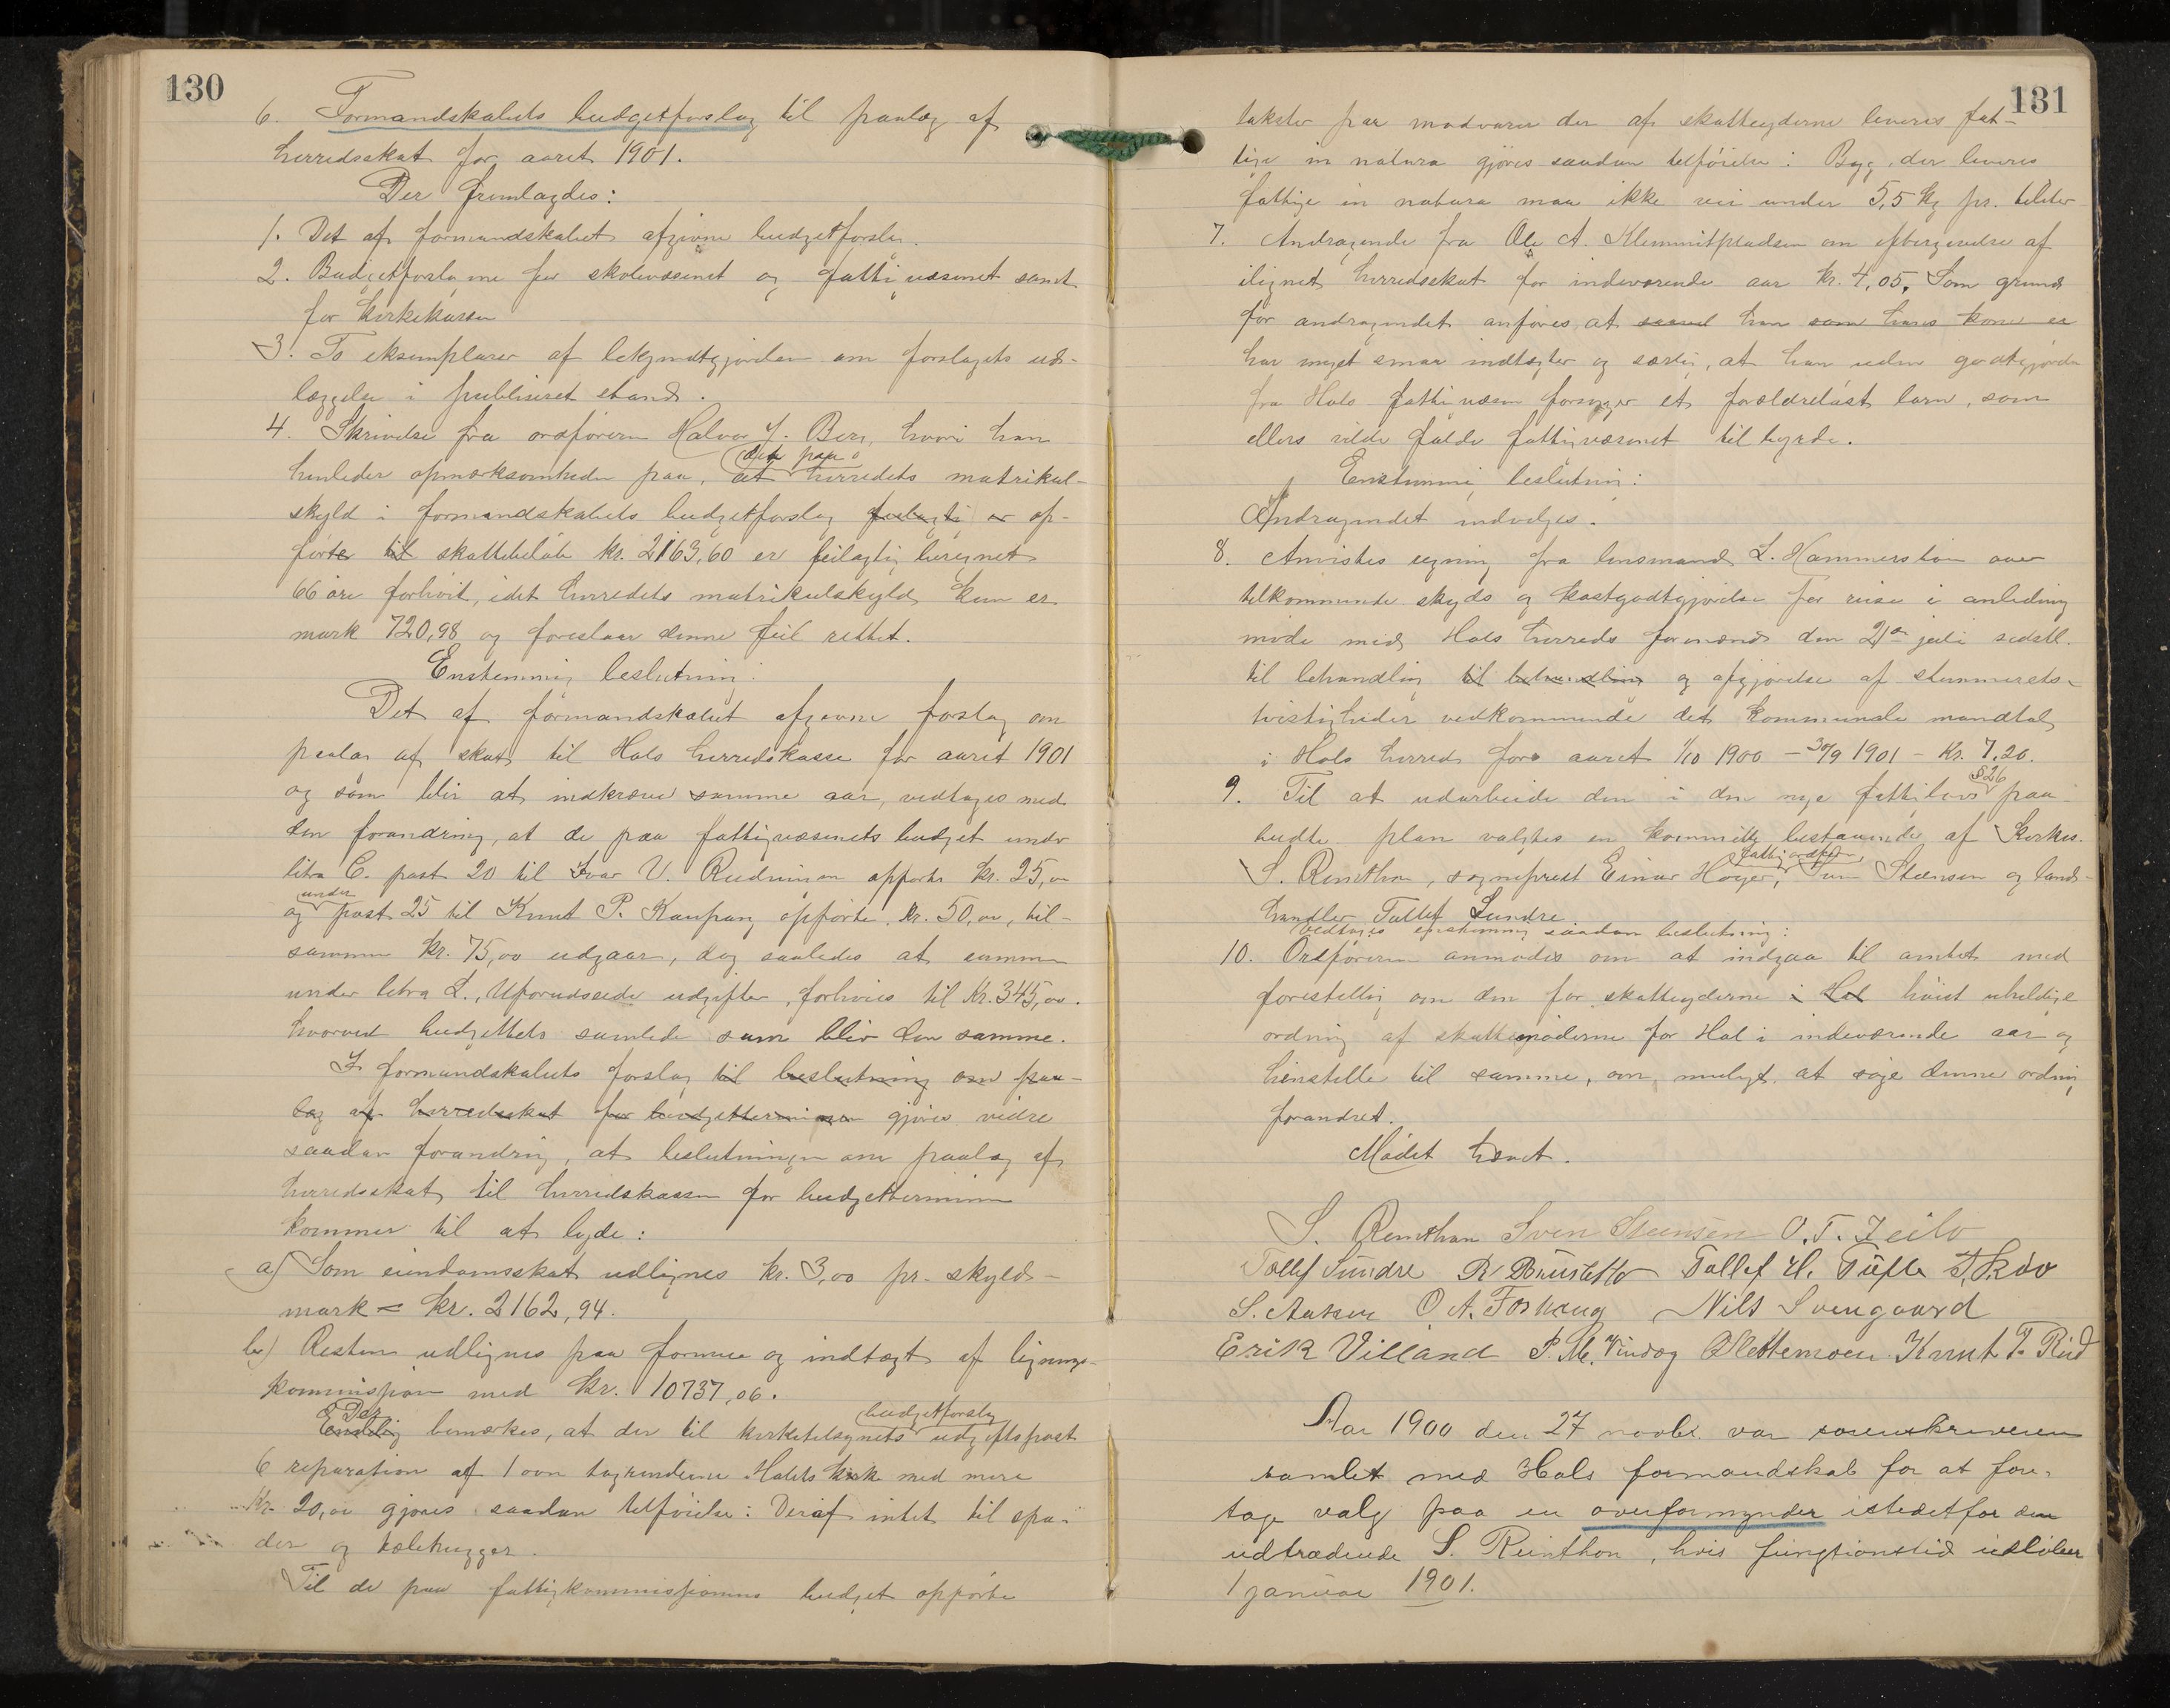 130
6. Formandskabets budgetforslag til paalæg af
herredsskat for aaret 1901.
Der fremlagdes:
1. Det af formandskabet afgivne budgetforslag.
2. Budgetforslagene for skolevæsenet og fattigvæsenet samt
for kirkekassen
3. To eksemplarer af bekjendtgjørelsen om forslagets ud-
læggelse i publiseret stand.
4. Skrivelse fra ordføreren Halvor J. Berg, hvori han
henleder opmærksomheden paa, at det paa herredets matrikul-
skyld i formandskabets budgetforslag feilagtig er op-
førte til skattebeløb kr. 2163,60 er feilagtig beregnet
66 øre forhøit, idet herredets matrikulskyld kun er
mark 720,98 og foreslaar denne feil rettet.
Enstemmig beslutning:
Det af formandskabet afgivne forslag om
paalæg af skat til Hols herredskasse for aaret 1901
og som blir at indkræve samme aar, vedtages med
den forandring, at de paa fattigvæsenets budget under
litra C. post 20 til Ivar U. Rudningen opførte kr. 25,00
og under post 25 til Knut P. Kaupang opførte kr. 50,00, til-
sammen kr. 75,00 udgaar, dog saaledes at summen
under litra L., Uforudseede udgifter, forhøies til kr. 345,00.
hvorved budgettets samlede sum blir den samme.
I formandskabets forslag til beslutning om paa-
læg af herredsskat for budgetterminen gjøres videre
saadan forandring, at beslutningen om paalæg af
herredsskat til herredskassen for budgetterminen
kommer til at lyde:
a) Som eiendomsskat udlignes kr. 3,00 pr. skyld-
mark = kr. 2162,94.
b) Resten udlignes paa formue og indtægt af lignings-
kommissjon med kr. 10737,06.
Endelig Det bemærkes, at der til kirketilsynets budgetforslag udgiftspost
6 reparation af 1 ovn tagrenderne Hovets kirke med mere
Kr. 20,00 gjøres saadan tilføielse: Deraf intet til spa-
der og kølehugger.
Til de paa fattigkommissjonens budget opførte
131
takster paa madvarer der af skatteyderne leveres fat-
tige in natura gjøres saadan tilføielse: Byg, der leveres
fattige in natura maa ikke veie under 5,5 kg pr.
7. Andragende fra Ole A. Klemmitpladsen om eftergivelse af
ilignet herredsskat for indeværende aar kr. 4,05. Som grund
for andragendet anføres, at saavel han som hans kone er
har meget smaa indtægter og særlig, at han uden godtgjørelse
fra Hols fattigvæsen forsørger et forældreløst barn, som
ellers vilde falde fattigvæsenet til byrde.
Enstemmig beslutning:
Andragendet indvilges.
8. Anvistes regning fra lensmand L. Hammersbøn over
tilkommende skyds og kostgodtgjørelse for reise i anledning
møde med Hols herreds formænd den 21de juli sidstl.
til behandling til behandling og afgjørelse af stemmerets-
tvistigheder vedkommende det kommunale mandtal
i Hols herred for aaret 1/10 1900 – 30/9 1901 – Kr. 7,20.
9. Til at udarbeide den i den nye fattiglovs § 26 paa-
budte plan valgtes en kommitte bestaaende af Kirkes.
S. Reinthon, sogneprest Einar Høyer, fattigordfører Sven Steensen og land-
handler Tollef Sundre.
Vedtages enstemmig saadan beslutning:
10. Ordføreren anmodes om at indgaa til amtet med
forestilling om den for skatteyderne i Hol høist uheldige
ordning af skattemøderne for Hol i indeværende aar og
henstille til samme, om muligt at søge denne ordning
forandret.
Mødet hævet.
S. Reinthon Sven Steensen O. T. Zeilo
Tollef Sundre R Bruslettо Tollef H. Tufte T. Skøo
S. Aasen O. A. Foshaug Nils Svengaard
Erik Villand P. M. Vindeg O Slettemoen Knut T. Rud
Aar 1900 den 27 novbr. var sorenskriveren
samlet med Hols formandskab for at fore-
tage valg paa en overformynder istedetfor den
udtrædende S. Reinthon, hvis fungtionstid udløber
1 januar 1901.